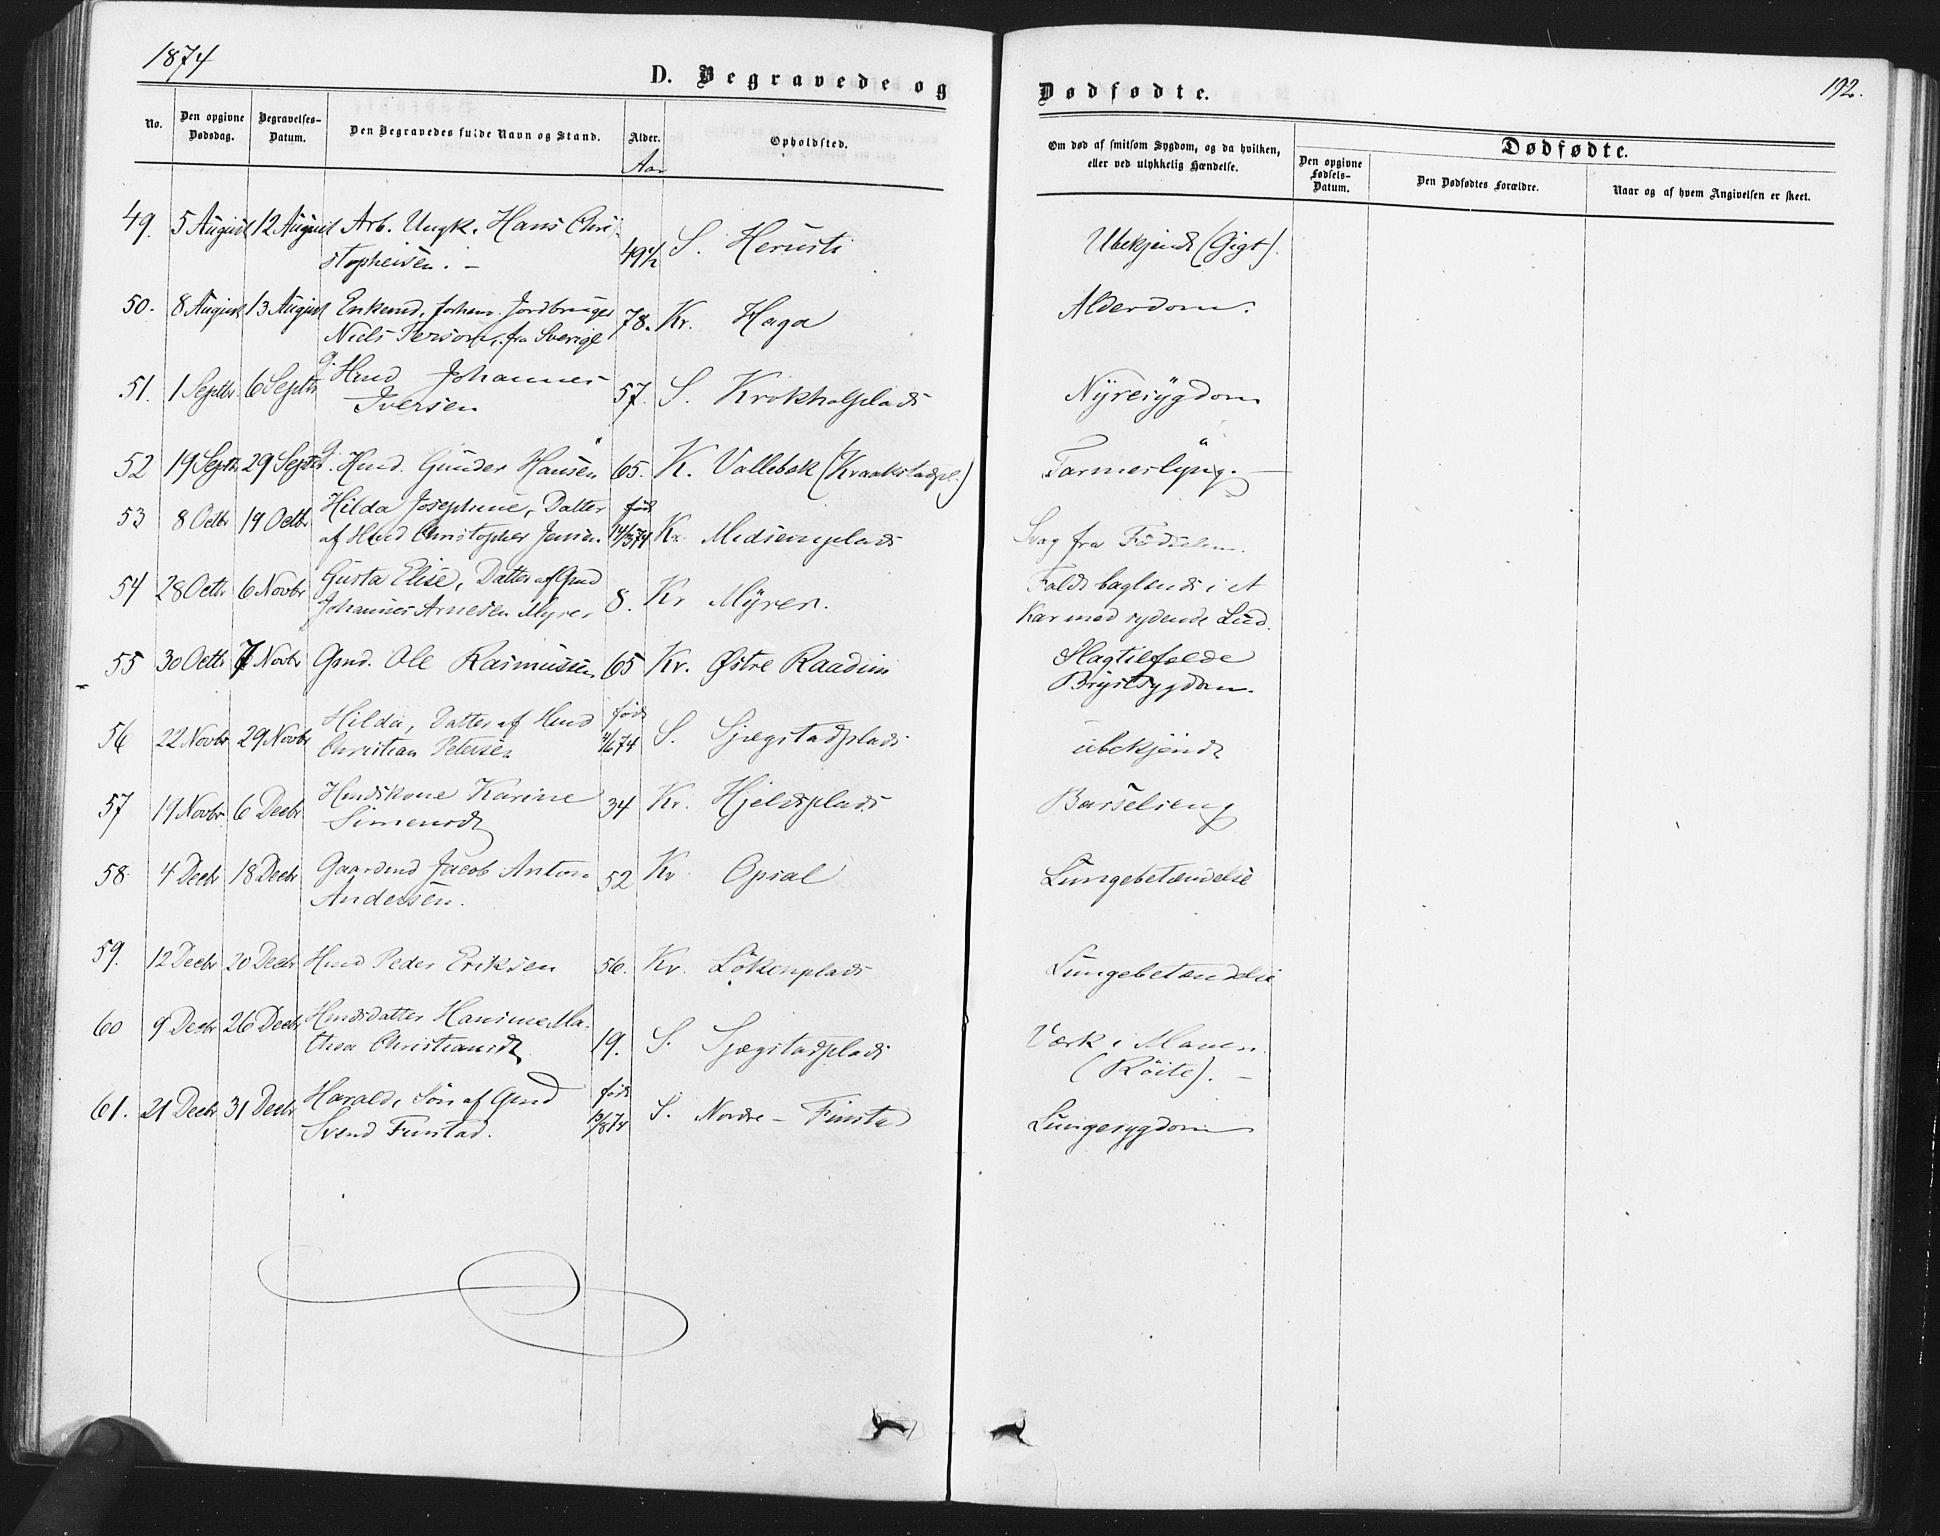 1874
D. Begravede og
Dødfødte.
192.
No.
Den opgivne Dødsdag.
Begravelses-Datum.
Den Begravedes fulde Navn og Stand.
Alder.
Aar
Opholdsted.
Om død af smitsom Sygdom, og da hvilken, eller ved ulykkelig Hændelse.
Dødfødte.
Den opgivne Fødsels-Datum.
Den Dødfødtes Forældre.
Naar og af hvem Angivelsen er skeet.
49. 5 August 12 August Arb. Ungk. Hans Chri-
stophersen. – 49½ S. Ubekjendt (Gigt).
50. 8 August 13 August Enkemd, Jordbruger
Niels Person, fra Sverige 78. Kr. Haga Alderdom.
51. 1 Septbr 6 Septbr Hmd Johannes
Iversen 57. S. Krokholplads Nyresygdom
52 19 Septbr 29 Septbr Hmd. Gunder Hansen 65. K. Vallebæk (Kraakstadpl.) Tarmeslyng. –
53 8 Octbr 19 Octbr Hilda Josephine, Datter
af Hmd Christopher Jensen. født 14/5 74 Kr. Svag fra Fødselen.
54 28 Octbr 6 Novbr Gusta Elise, Datter af Gmd
Johannes Arnesen Myrer 8. Kr Myrer. Faldt baglends i et
Kar med sydende Lud.
55 30 Octbr 7 Novbr Gmd. Ole Rasmussen 65 Kr. Østre Raadim Slagtilfælde
Brystsygdom.
56 22 Novbr 29 Novbr Hilda, Datter af Hmd
Christian Petersen født 4/6 74 S. Sjægstadplads ubekjendt
57 19 Novbr 6 Decbr Hmdskone Karine
Simensdt 34 Kr. Hjeldsplads Barselseng
58. 4 Decbr 18 Decbr Gaardmd Jacob Anton
Andersen. 52 Kr. Opsal Lungebetændelse
59. 12 Decbr 20 Decbr Hmd Peder Eriksen 56. Kr. Løkenplads Lungebetændelse
60 9 Decbr 26 Decbr Hmdsdatter Hansine Ma-
thea Christiansdt 19. S. Sjægstadplads Værk i Maven.
(Køite). –
61. 21 Decbr 31 Decbr Harald, Søn af Gmd
Svend Finstad. født 13/8 74 S. Nordre – Finstad Lungesygdom